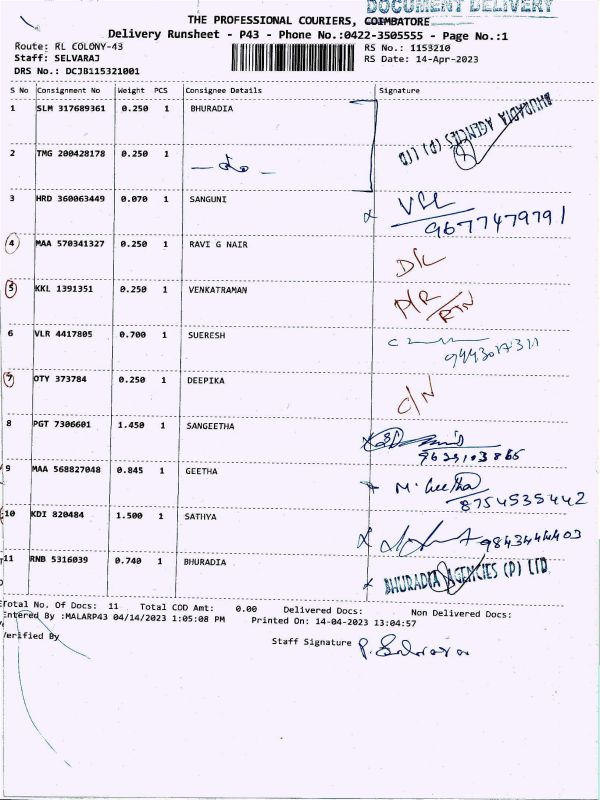 DOCUMENT DELIVERY
THE PROFESSIONAL COURIERS, COIMBATORE
Delivery Runsheet - P43 - Phone No.:0422-3505555 - Page No.:1
Route: RL COLONY-43 RS No.: 1153210
Staff: SELVARAJ RS Date: 14-Apr-2023
DRS No.: DCJB115321001
S No Consignment No Weight PCS Consignee Details Signature
1 SLM 317689361 0.250 1 BHURADIA BHURADIA AGENCIES (P) LTD
2 TMG 200428178 0.250 1
3 HRD 360063449 0.070 1 SANGUNI
9677479791
4 MAA 570341327 0.250 1 RAVI G NAIR D/L
5 KKL 1391351 0.250 1 VENKATRAMAN
6 VLR 4417805 0.700 1 SUERESH
7 OTY 373784 0.250 1 DEEPIKA C/N
8 PGT 7306601 1.450 1 SANGEETHA
9 MAA 568827048 0.845 1 GEETHA M. Geetha
8754535442
10 KDI 820484 1.500 1 SATHYA 9843444403
11 RNB 5316039 0.740 1 BHURADIA BHURADIA AGENCIES (P) LTD
Total No. Of Docs: 11 Total COD Amt: 0.00 Delivered Docs: Non Delivered Docs:
Entered By :MALARP43 04/14/2023 1:05:08 PM Printed On: 14-04-2023 13:04:57
Verified By Staff Signature